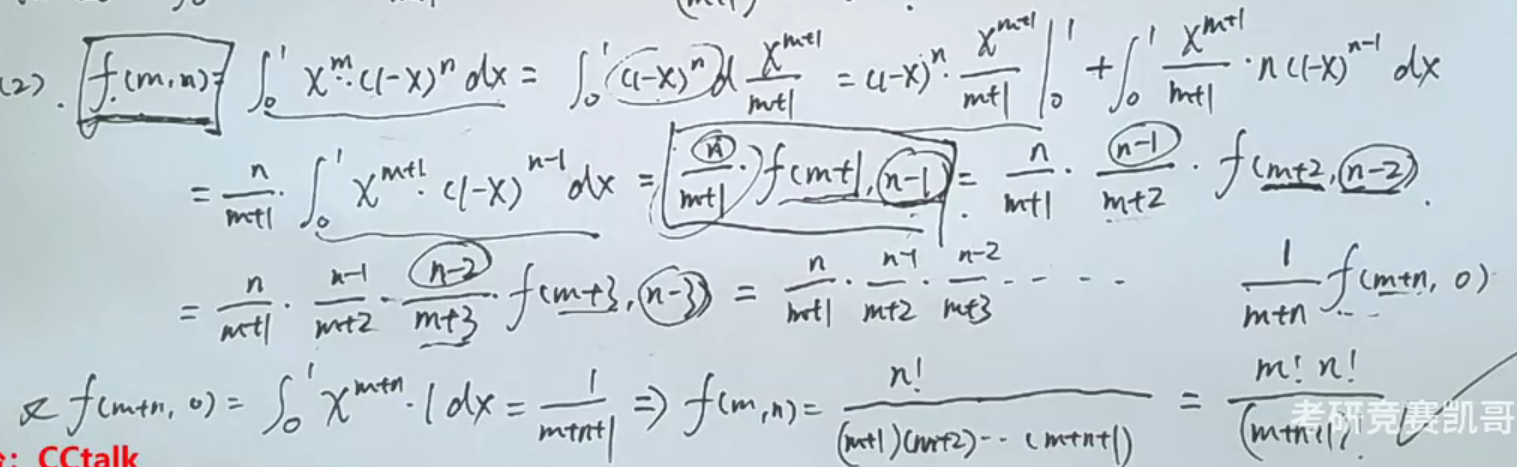 (2). f(m,n)= ∫₀¹ x^m·(1-x)^n dx = ∫₀¹ (1-x)^n d x^{m+1}/(m+1) = (1-x)^n · x^{m+1}/(m+1) |₀¹ + ∫₀¹ x^{m+1}/(m+1) · n(1-x)^{n-1} dx
= n/(m+1) · ∫₀¹ x^{m+1}·(1-x)^{n-1} dx = n/(m+1) · f(m+1, n-1) = n/(m+1) · (n-1)/(m+2) · f(m+2, n-2).
= n/(m+1) · (n-1)/(m+2) · (n-2)/(m+3) · f(m+3, n-3) = n/(m+1) · (n-1)/(m+2) · (n-2)/(m+3) ---- 1/(m+n) f(m+n, 0)
f(m+n, 0) = ∫₀¹ x^{m+n}·1 dx = 1/(m+n+1) ⇒ f(m,n) = n!/((m+1)(m+2)--(m+n+1)) = m! n!/(m+n+1)!
考研竞赛凯哥
: CCtalk